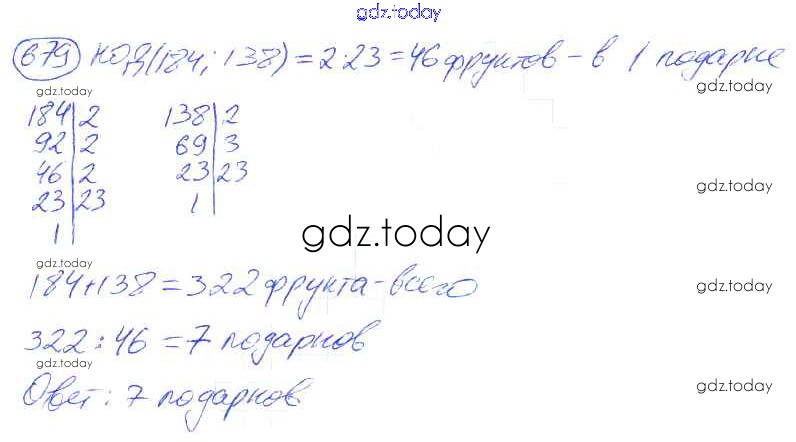 gdz.today
679 НОД(184; 138) = 2·23 = 46 фруктов - в 1 подарке
gdz.today gdz.today
184 | 2 138 | 2
92 | 2 69 | 3
gdz.today
46 | 2 23 | 23
gdz.today
23 | 23 1 |
1 |
gdz.today
gdz.today
184+138 = 322 фрукта - всего
gdz.today
322 : 46 = 7 подарков
gdz.today
Ответ: 7 подарков.
gdz.today
gdz.today